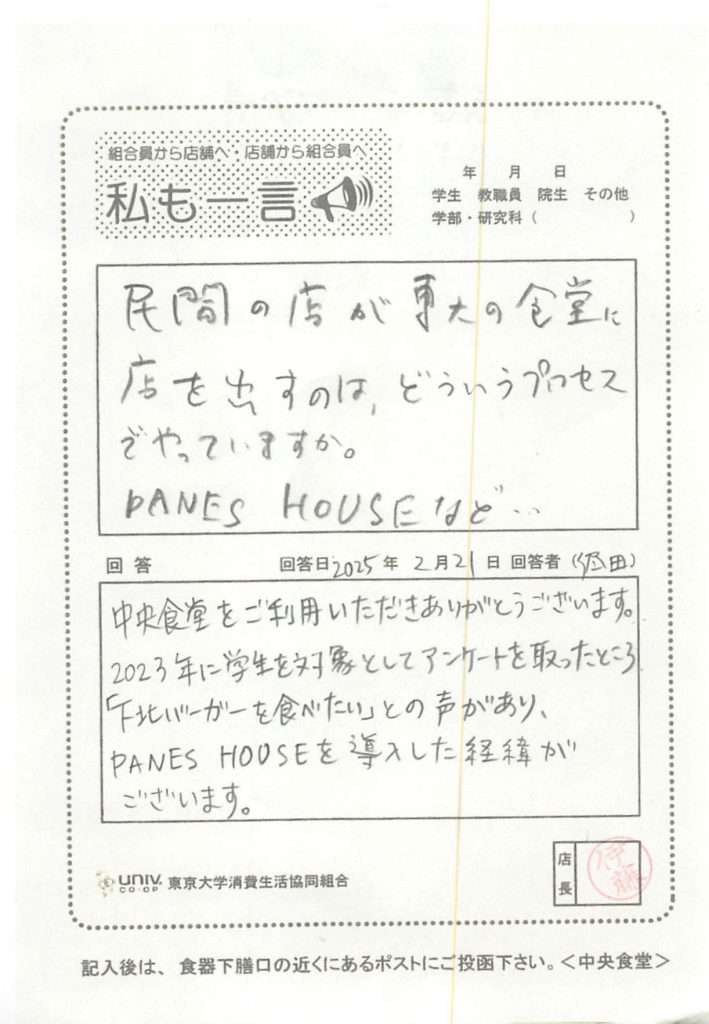 組合員から店舗へ・店舗から組合員へ
私も一言
年 月 日
学生 教職員 院生 その他
学部・研究科 ( )
民間の店が東大の食堂に
店を出すのは,どういうプロセス
でやっていますか。
PANES HOUSEなど…
回答 回答日2025年 2月21日 回答者 (沼田)
中央食堂をご利用いただきありがとうございます。
2023年に学生を対象としてアンケートを取ったところ
「下北バーガーを食べたい」との声があり、
PANES HOUSEを導入した経緯が
ございます。
店長
伊藤
UNIV. CO-OP 東京大学消費生活協同組合
記入後は、食器下膳口の近くにあるポストにご投函下さい。<中央食堂>